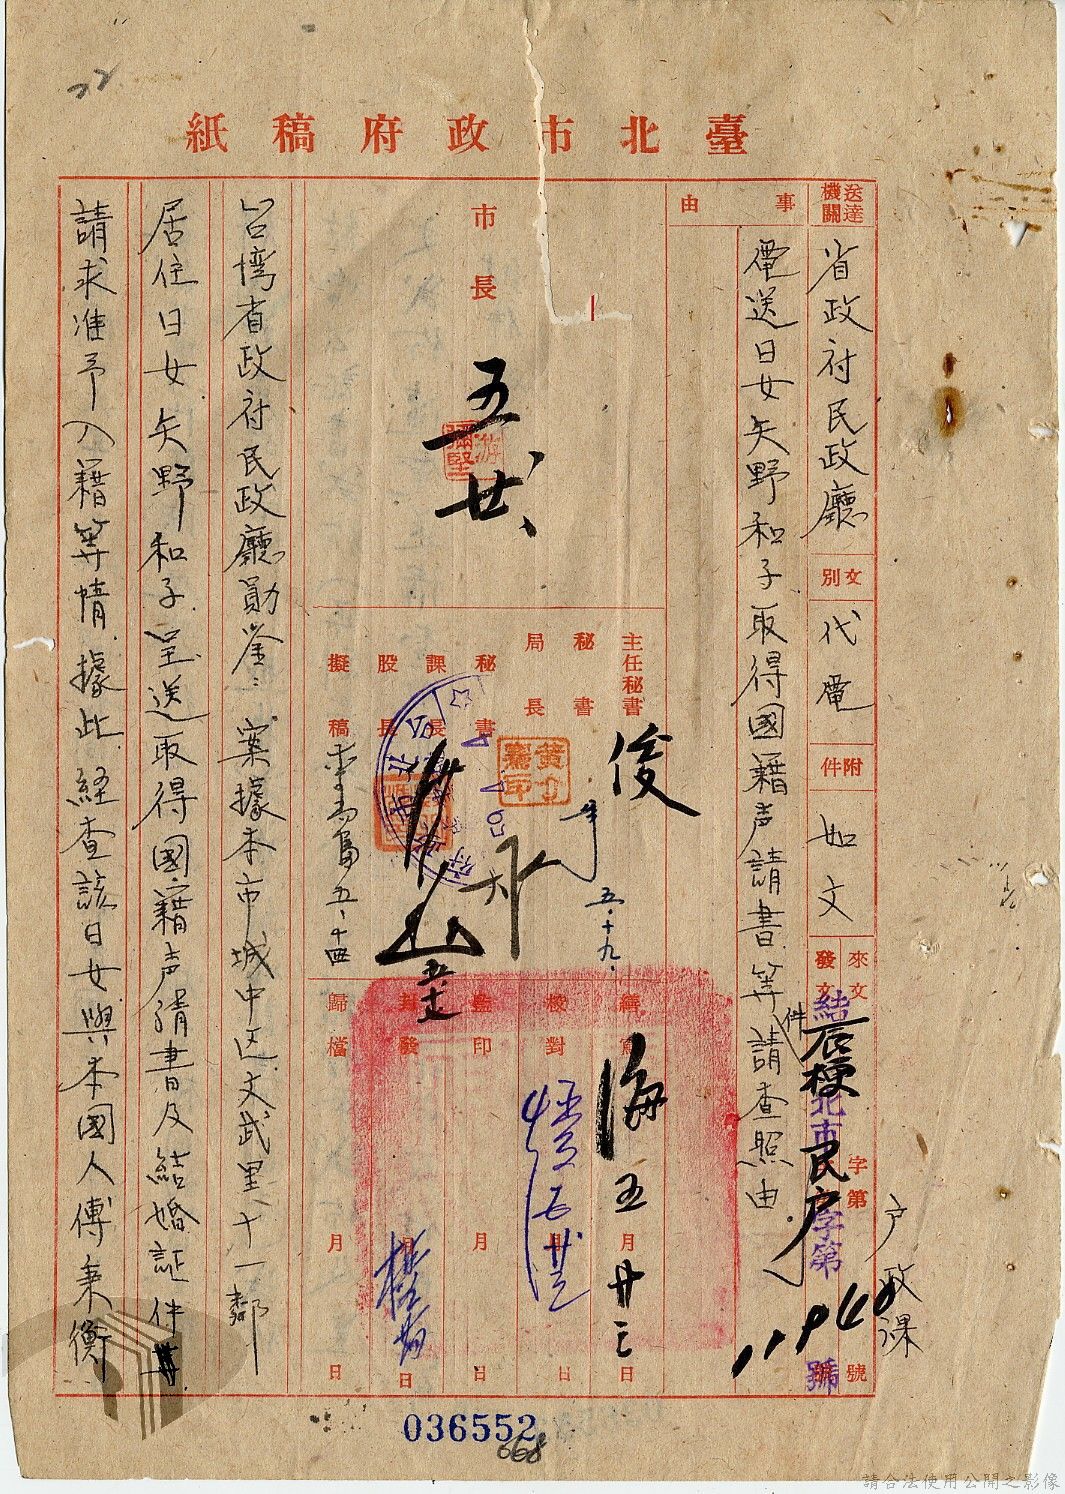 臺北市政府稿紙
送達機關
省政府民政廳
文別
代電
附件
如文
事由
電送日女矢野和子取得國籍声請書等件請查照由
來文
發文
字第
號
北市
字第
號
民户
户政課
市長
五
廿
游彌堅
主任秘書
秘書
局長
秘書
課長
股長
擬稿
俊
五、十九、
黃介騫印
五、十四
繕寫
校對
監印
封發
歸檔
月
日
海五廿三
台湾省政府民政廳勛鉴：案據本市城中区文武里十一鄰
居住日女矢野和子呈送取得國籍声請書及結婚証件等
請求准予入籍等情，據此，経查該日女與本國人傅秉衡
036552
668
請合法使用公開之影像